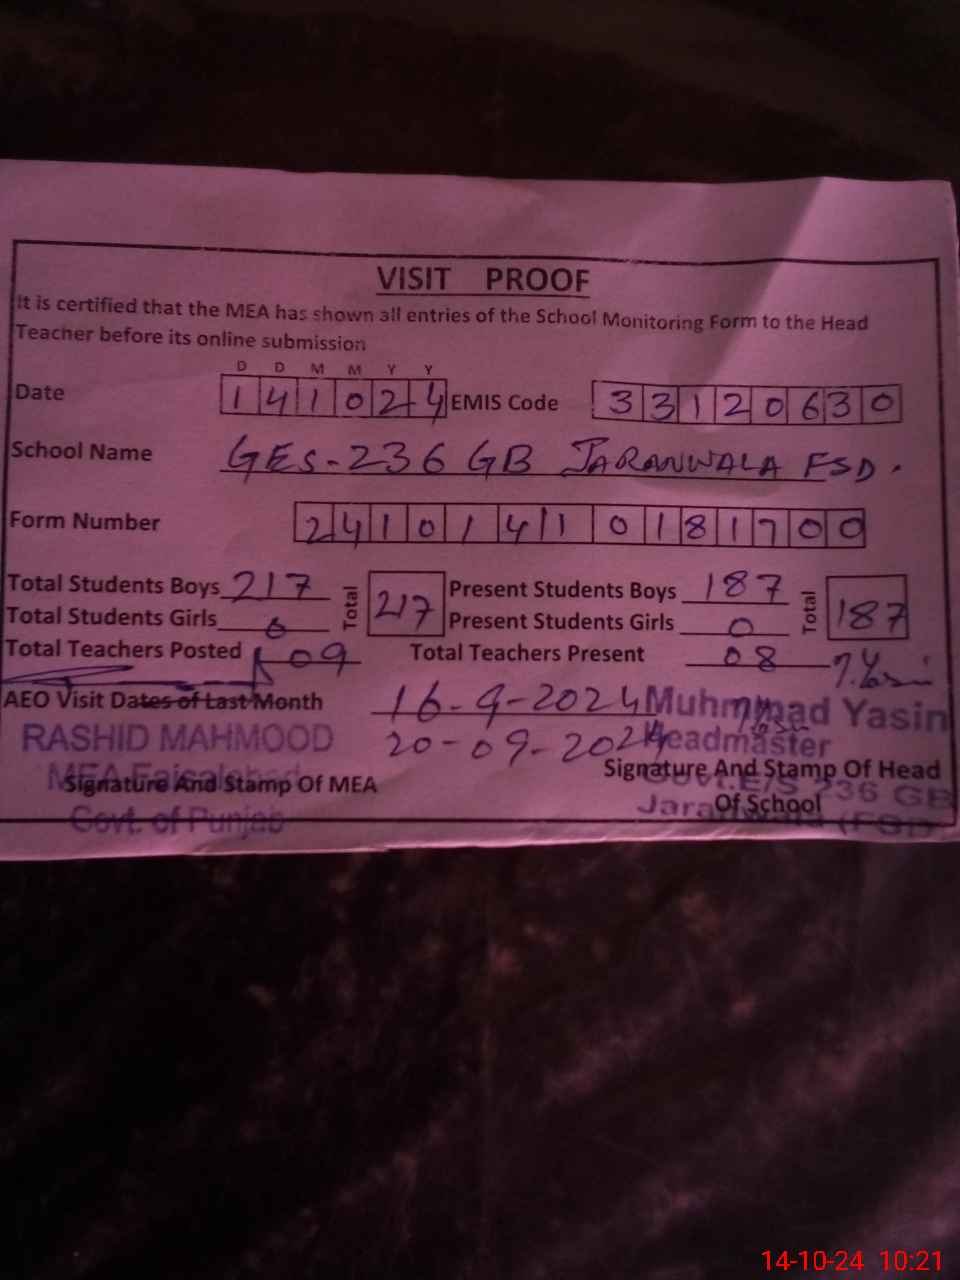 VISIT PROOF
It is certified that the MEA has shown all entries of the School Monitoring Form to the Head
Teacher before its online submission
D D M M Y Y
Date 141024 EMIS Code 33120630
School Name GES-236 GB JARANWALA FSD.
Form Number 24101410181700
Total Students Boys 217 Total 217 Present Students Boys 187 Total 187
Total Students Girls 0 Present Students Girls 0
Total Teachers Posted 09 Total Teachers Present 08
AEO Visit Dates of Last Month 16-9-2024 Muhmmad Yasin
RASHID MAHMOOD 20-09-2024 Headmaster
MEA Faisalabad
Signature And Stamp Of MEA Signature And Stamp Of Head
Govt. E/S 236 GB
Of School
Govt. of Punjab Jaranwala (FSD)
14-10-24 10:21